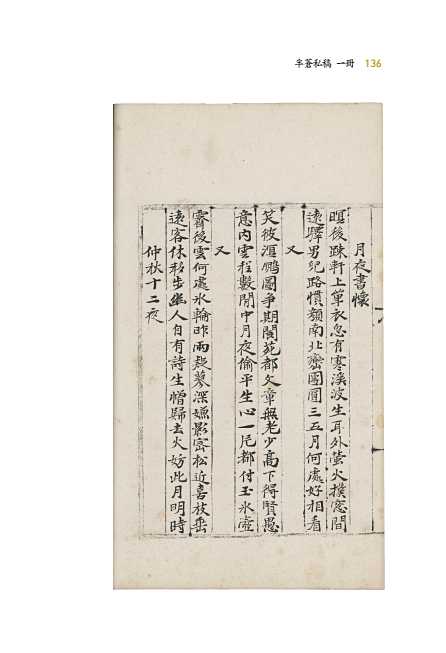 半蒼私稿 一冊 136
月夜書懷
暝後踈軒上簟衣忽有寒溪波生耳外螢火撲窓間
遠驛男兒路慣嶺南北巒團圓三五月何處好相看
又
笑彼溟鵬圖爭期閬苑都文章無老少高下得賢愚
意內雲程數閒中月夜偷平生心一片都付玉氷壺
又
霽後雲何處氷輪昨兩
深嫌影密松近喜枝垂
遠客休移步幽人自有詩生憎歸去火妨此月明時
仲秋十二夜